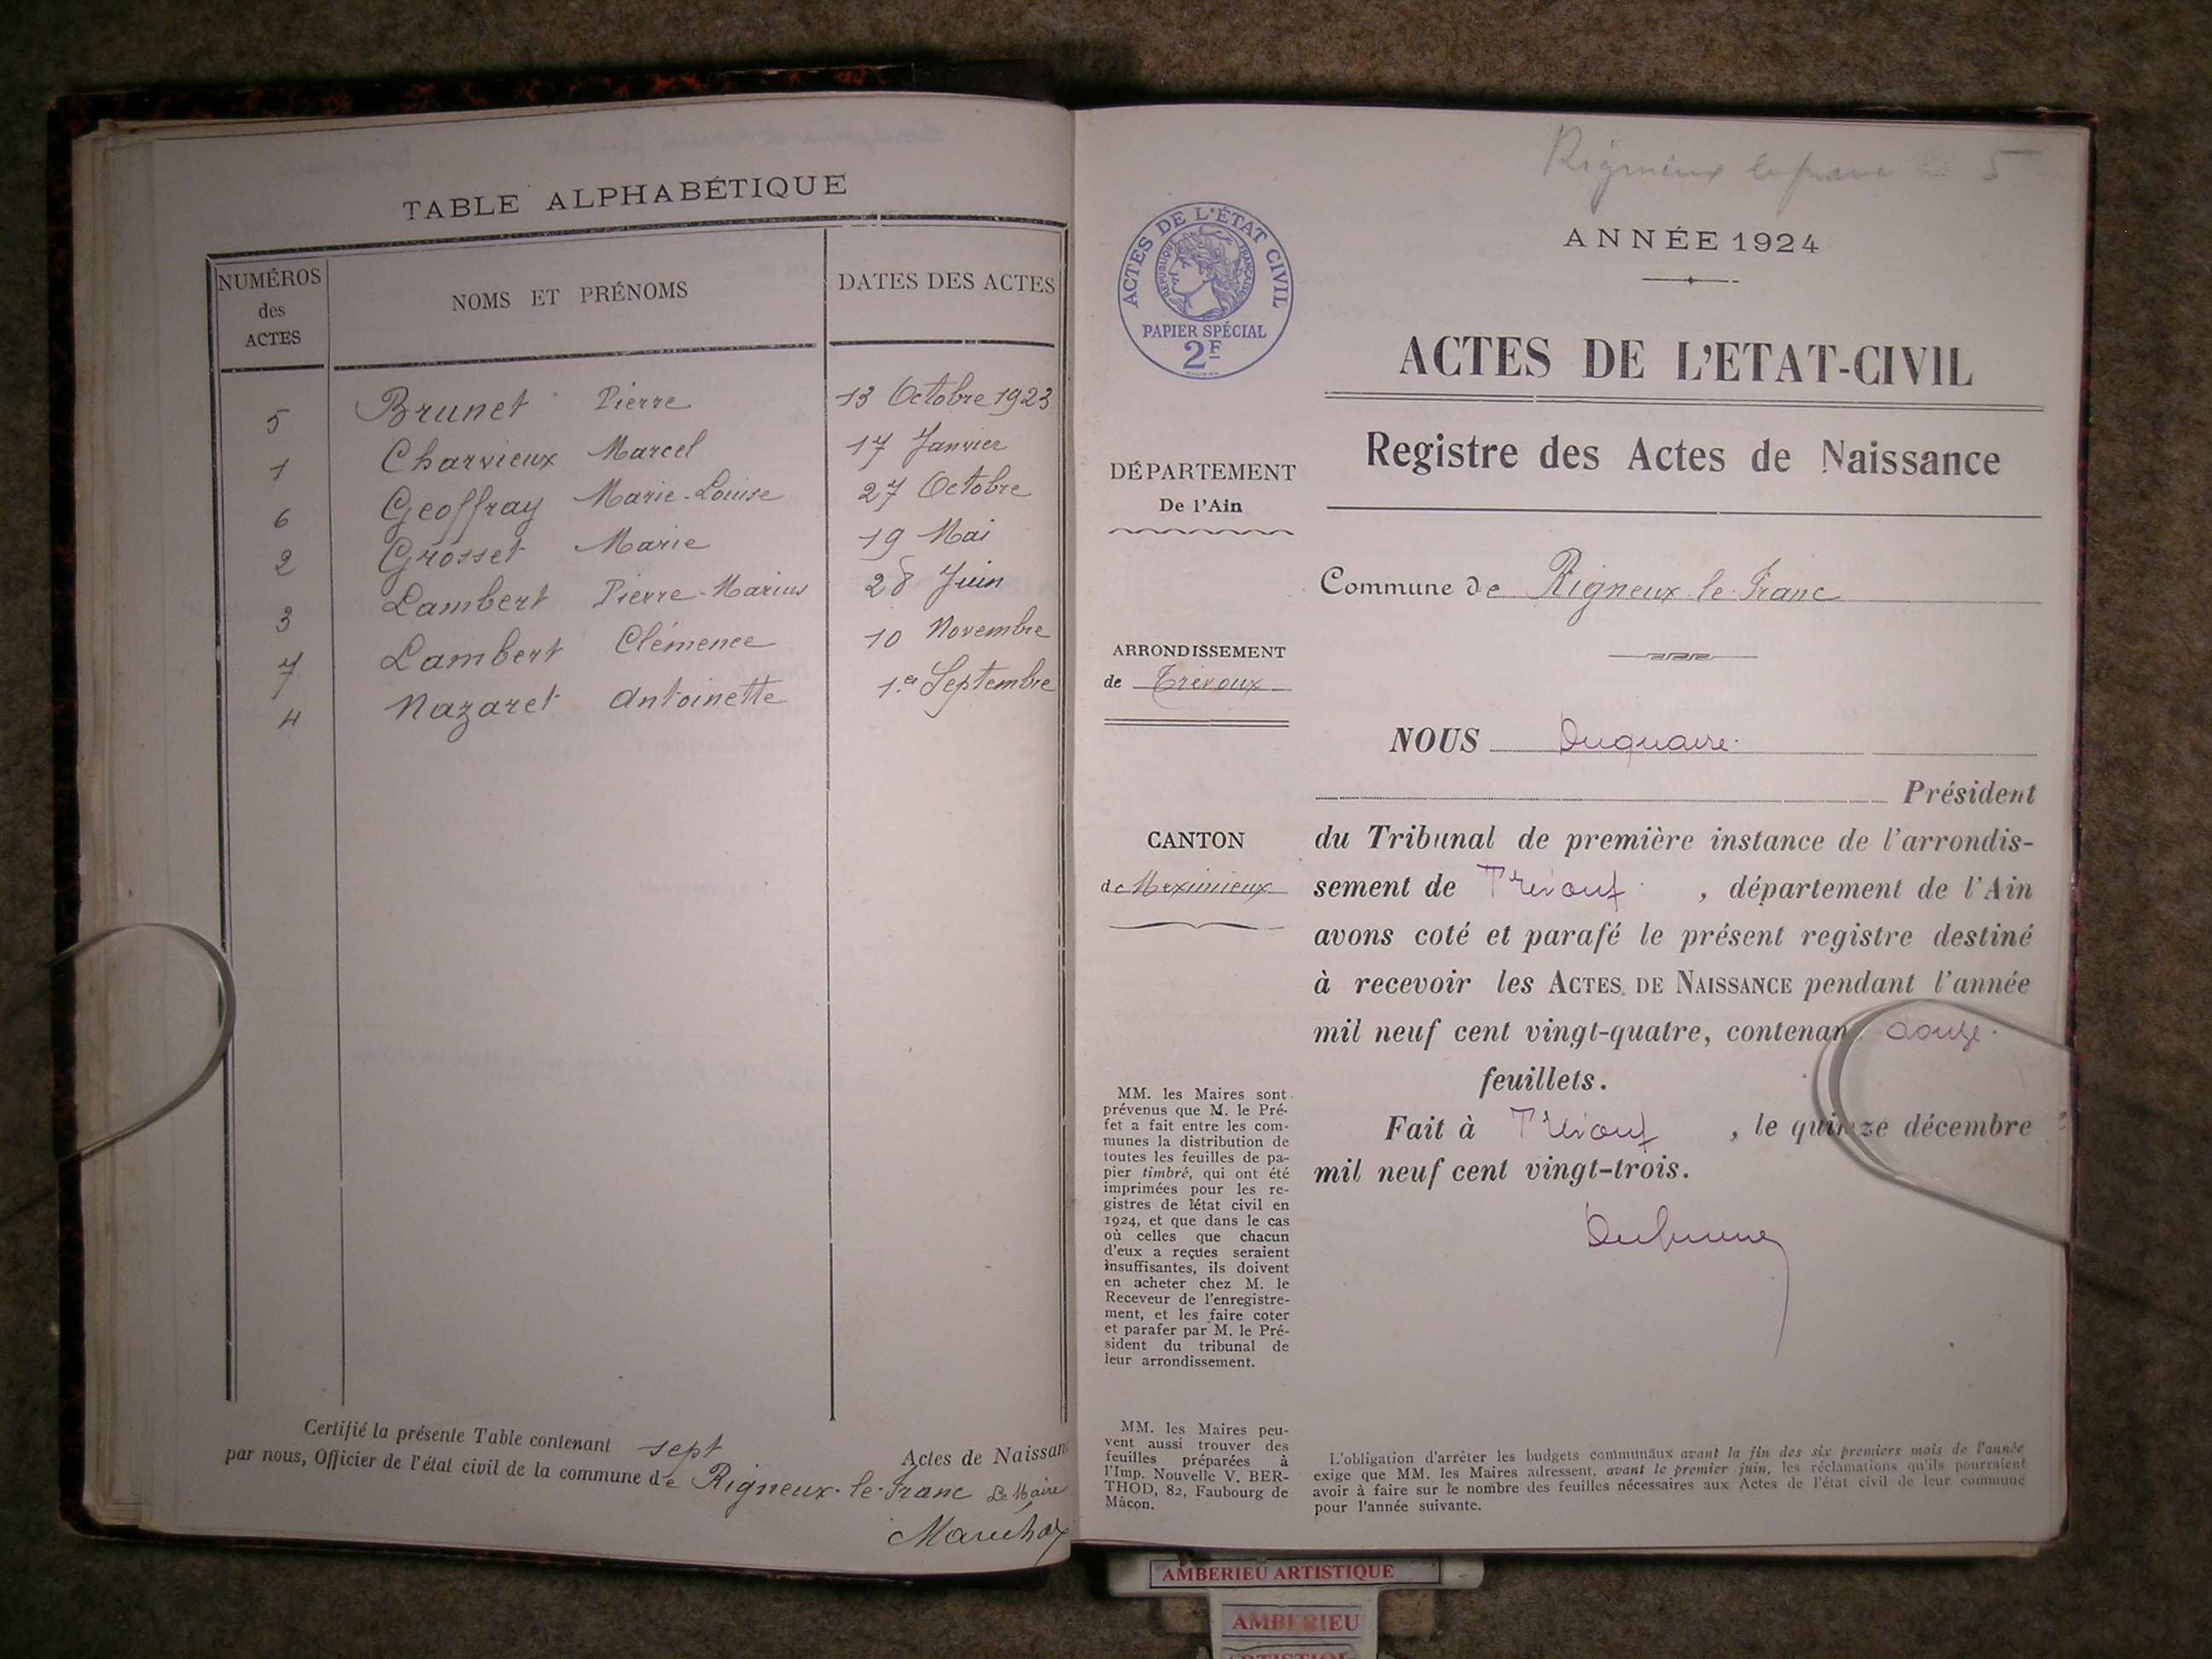 TABLE ALPHABÉTIQUE
NUMÉROS des ACTES
NOMS ET PRÉNOMS
DATES DES ACTES
5 Brunet Pierre 13 Octobre 1923
1 Charvieux Marcel 17 Janvier
6 Geoffray Marie-Louise 27 Octobre
2 Grosset Marie 19 Mai
3 Lambert Pierre-Marius 28 Juin
7 Lambert Clémence 10 Novembre
4 Nazaret Antoinette 1.er Septembre
Certifié la présente Table contenant sept Actes de Naissan
par nous, Officier de l'état civil de la commune de Rigneux-le-Franc Le Maire
Rigneux le franc 5
ANNÉE 1924
ACTES DE L'ÉTAT CIVIL
RÉPUBLIQUE FRANÇAISE
PAPIER SPÉCIAL
2F
ACTES DE L'ETAT-CIVIL
Registre des Actes de Naissance
DÉPARTEMENT
De l'Ain
Commune de Rigneux-le-Franc
ARRONDISSEMENT
de Trévoux
CANTON
de Meximieux
NOUS Duquaire
Président
du Tribunal de première instance de l'arrondis-
sement de Trévoux, département de l'Ain
avons coté et parafé le présent registre destiné
à recevoir les ACTES DE NAISSANCE pendant l'année
mil neuf cent vingt-quatre, contenan douze
feuillets.
Fait à Trévoux, le quinze décembre
mil neuf cent vingt-trois.
MM. les Maires sont
prévenus que M. le Pré-
fet a fait entre les com-
munes la distribution de
toutes les feuilles de pa-
pier timbré, qui ont été
imprimées pour les re-
gistres de l'état civil en
1924, et que dans le cas
où celles que chacun
d'eux a reçues seraient
insuffisantes, ils doivent
en acheter chez M. le
Receveur de l'enregistre-
ment, et les faire coter
et parafer par M. le Pré-
sident du tribunal de
leur arrondissement.
MM. les Maires peu-
vent aussi trouver des
feuilles préparées à
l'Imp. Nouvelle V. BER-
THOD, 82, Faubourg de
Mâcon.
L'obligation d'arrêter les budgets communaux avant la fin des six premiers mois de l'année
exige que MM. les Maires adressent, avant le premier juin, les réclamations qu'ils pourraient
avoir à faire sur le nombre des feuilles nécessaires aux Actes de l'état civil de leur commune
pour l'année suivante.
AMBERIEU ARTISTIQUE
AMBERIEU
ARTISTIQUE